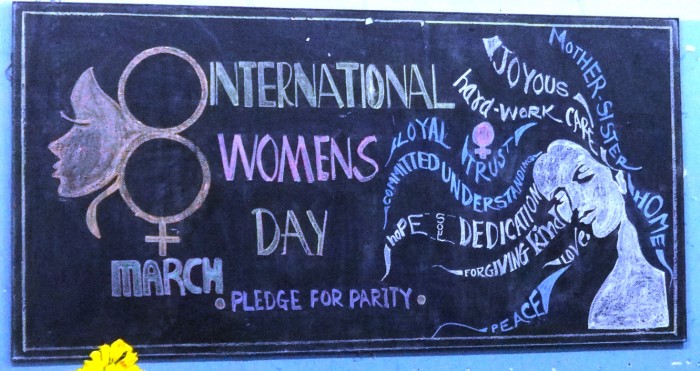 8
MARCH
INTERNATIONAL
WOMENS
DAY
PLEDGE FOR PARITY
MOTHER-SISTER
HOME
JOYOUS
hard-WORK
CARE
LOYAL
TRUST
COMMITTED UNDERSTANDING
hOPE
SOUL
DEDICATION
FORGIVING
Kind
LOVE
PEACE